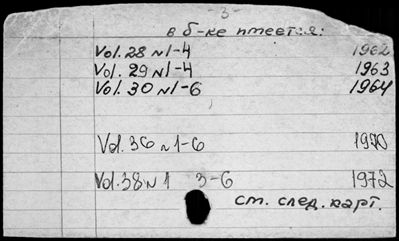 -3-
в б-ке имеется:
Vol. 28 №1-4 1962
Vol. 29 №1-4 1963
Vol. 30 №1-6 1964
Vol. 36 №1-6 1970
Vol. 38 №1 3-6 1972
см. след. карт.